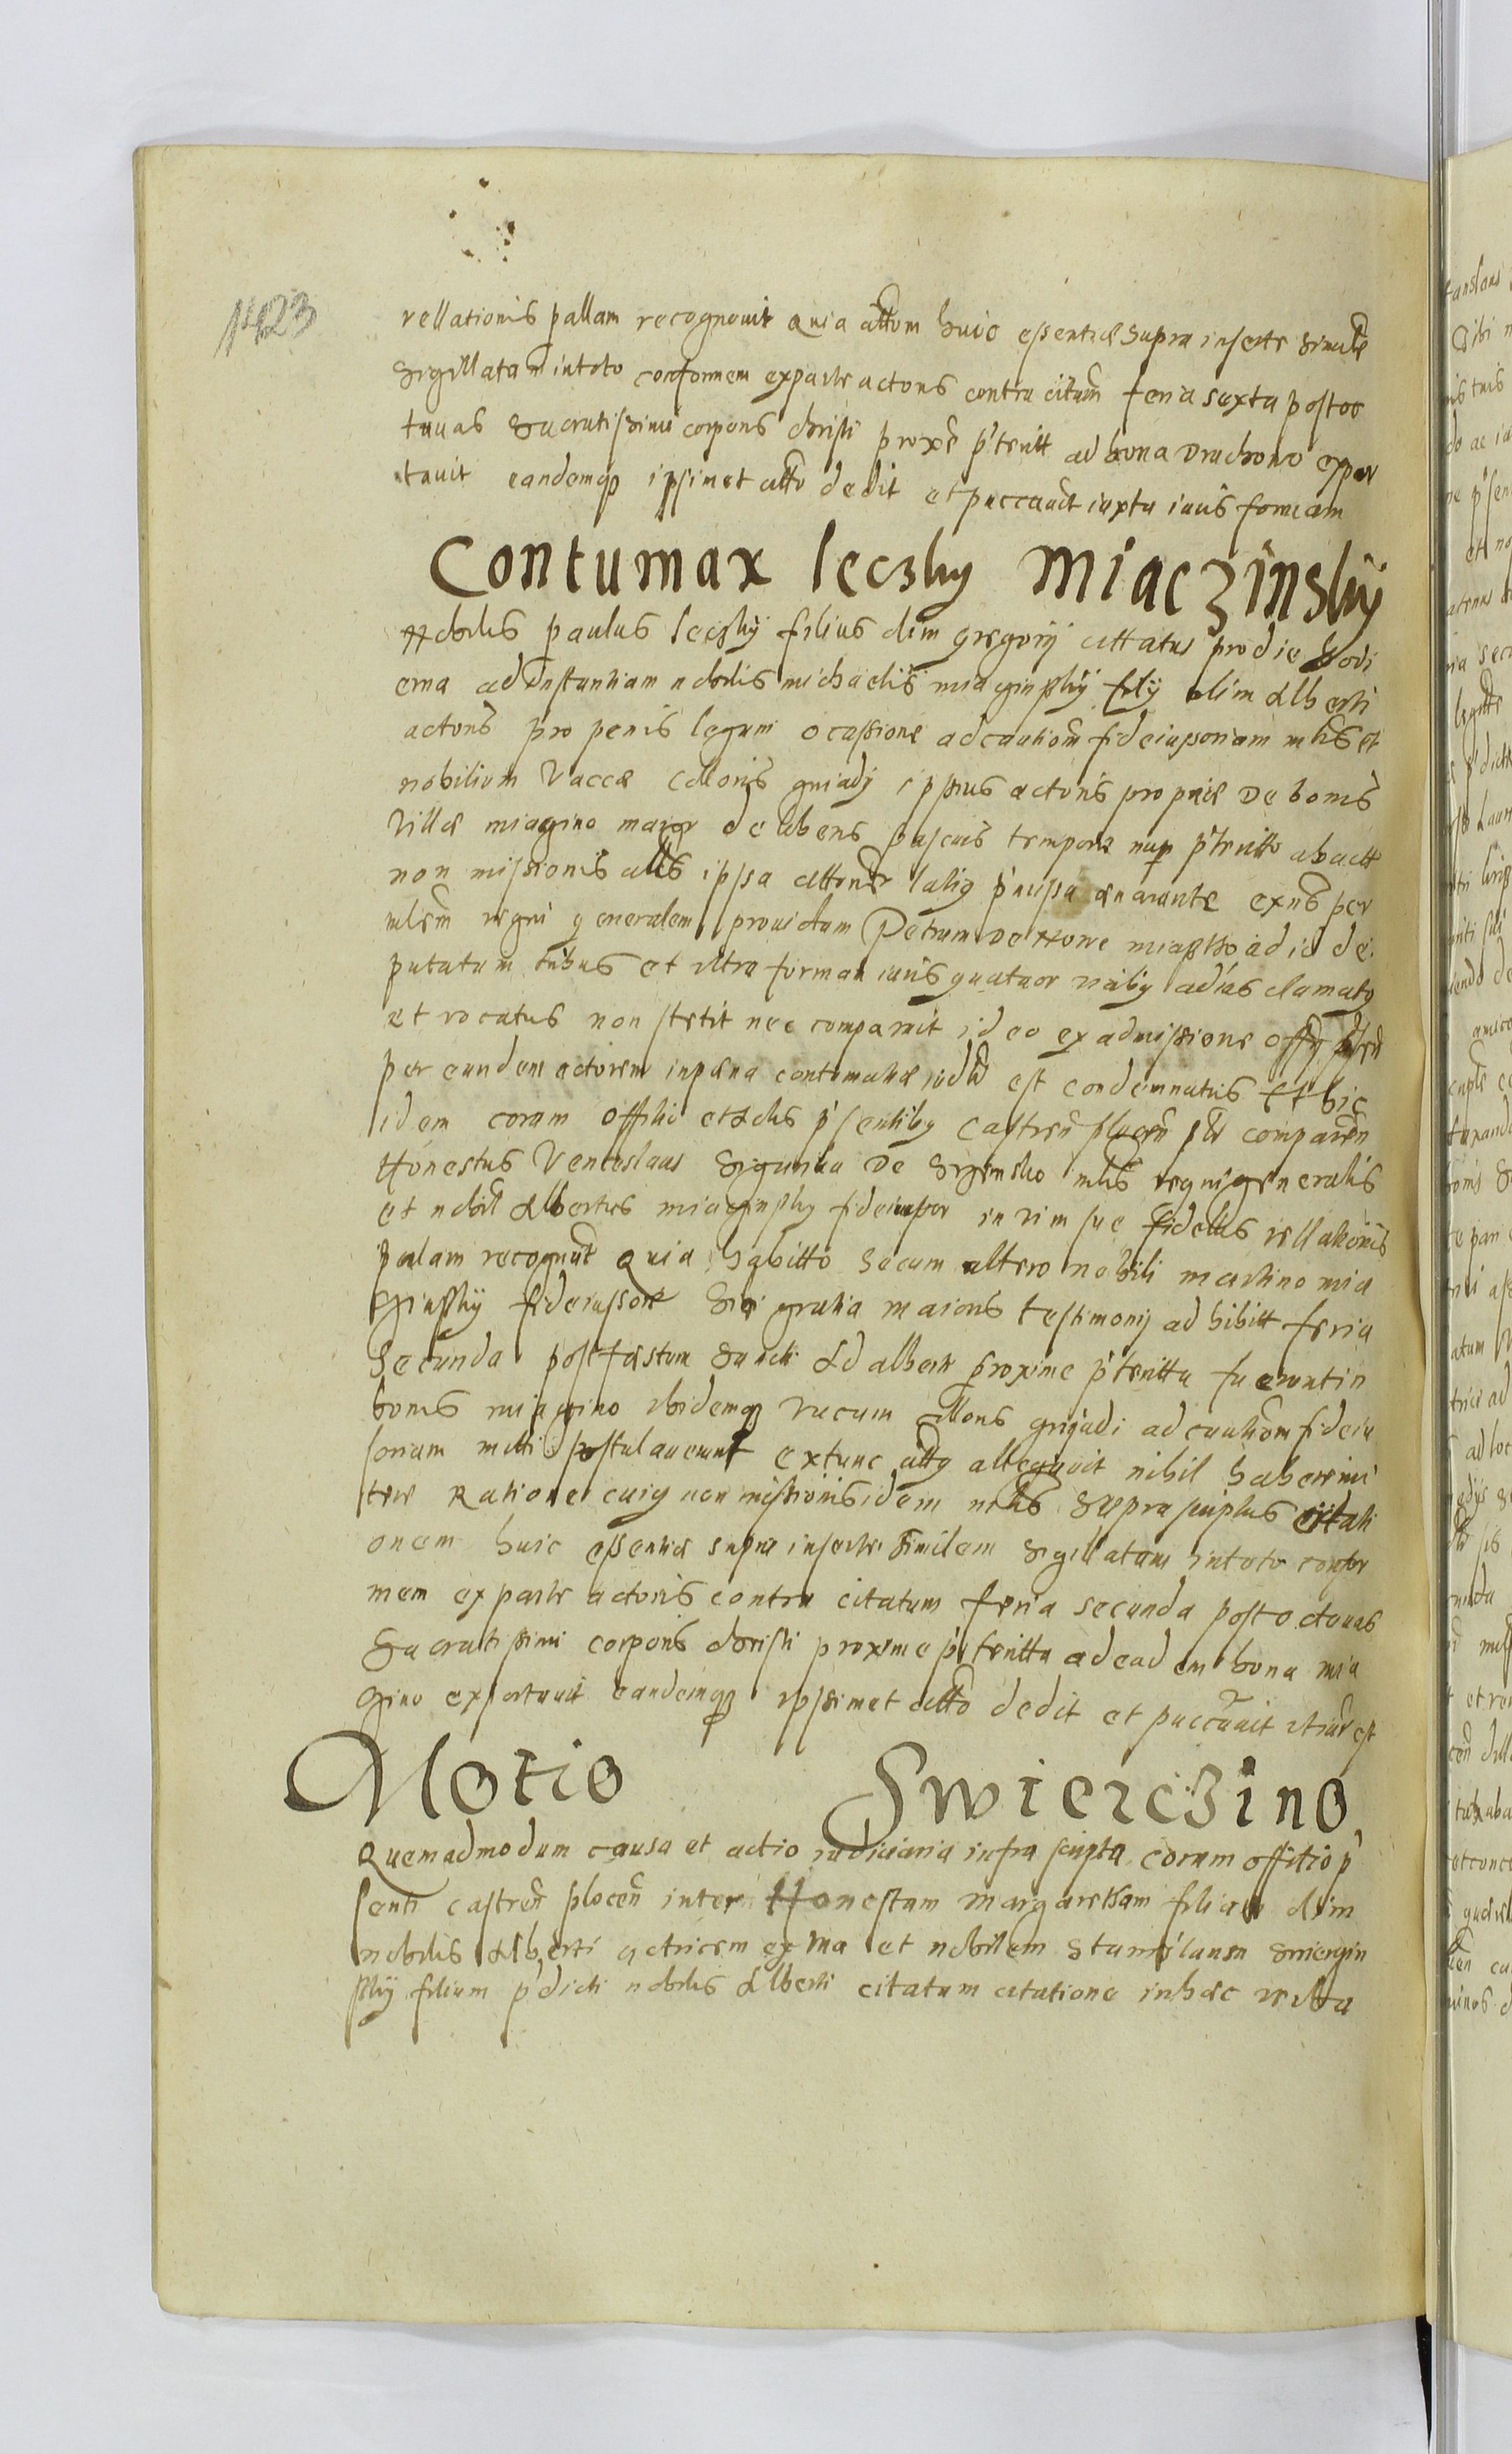 1423
rellationis pallam recognouit quia cittom huic essentiæ supra inserte simile
Sigillatam intoto conformem exparte actoris contra citatum feria sexta post oc
tauas Sacratissimi corporis christi proxe p'teritt ad bona Drachowo expor
tauit eandemq ipsimet citto dedit et paccauit iuxta iuris formam
Contumax leczky Miaczinsky
Nobilis paulus leczky filius olim gregorij cittatus pro die hodi
erna ad instantiam nobilis michaelis miaginsky filij olim Alberti
actoris pro penis legum ocassione ad cautionem fideiussoriam mlis et
nobilium vaccæ colloris gniady ippsius actoris propriæ de bonis
villæ miagino maior de libens pascuis tempore nup p'teritto abactt
non missionis alls ipsa cittone latiq p'missa enarante exns per
mlem regni generalem prouidum Petrum de Nowe miastko ad id de
putatum tribus et vltra formam iuris quatuor vicibq ad ius clamatq
et vocatus non stetit nec comparuit ideo ex admissione offy psen
per eundem actorem in pæna contumatiæ iudd est condemnatus Et hic
idem coram offitio et Actis p'sentibq Castren plocen psr comparen
Honestus Venceslaus de mlis regni generalis
et nobil Albertus miaginsky fideiussor in vim sue fidelis rellationis
palam recognrt quia habitto secum altero nobili martino mia
ginsky fideiussore Sibi gratia maioris testimonij adhibitt feria
Secunda post festum Sancti Adalberti proxime p'teritta fuerunt in
bonis miagino ibidemq vaccam colloris gniadi ad cautiom fideiu
soriam mitti postulauerunt extunc cittq allegauit nihil habere mi
tere Ratione cuiq non missionis idem mlis supra scriptus citati
onem huic essentiæ supra inserte similem sigillatam intoto confor
mem ex parte actoris contra citatum feria secunda post octauas
Sacratissimi corporis christi proxime p'teritta ad eadem bona mia
gino exportauit eandemq ipsimet citto dedit et paccauit vt iur est
Motio Swierczino
Quemadmodum causa et actio iudiciaria infra scripta coram offitio p'
senti castren plocen inter Honestam margaretham filiam olim
nobilis Alberti actricem ex vna et nobilem Stanislaum swiergin
sky filium p'dicti nobilis Alberti citatum citatione in hæc verba